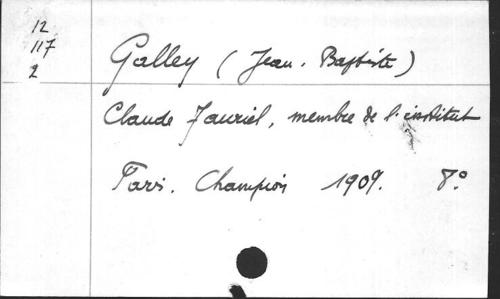 12
117
2
Galley (Jean-Baptiste)
Claude Fauriel, membre de l'institut
Paris. Champion 1909. 8°